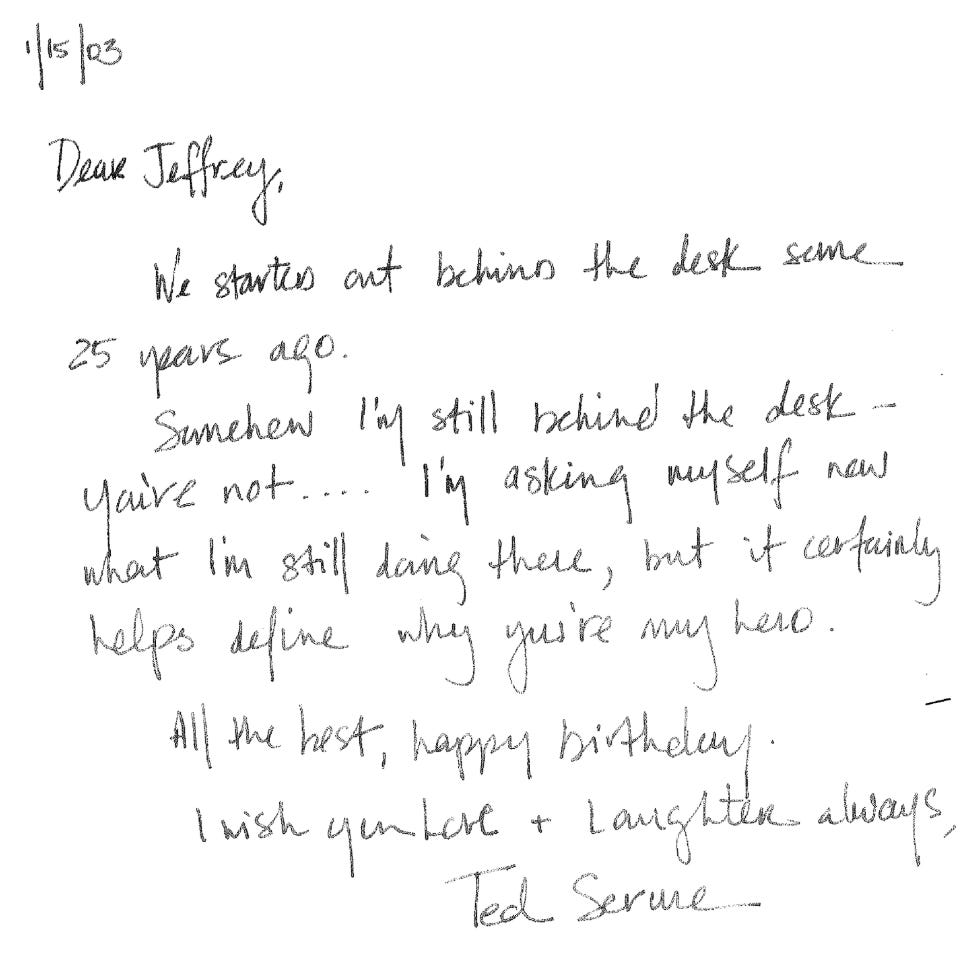 1/15/03
Dear Jeffrey,
We started out behind the desk some
25 years ago.
Somehow I'm still behind the desk –
you're not.... I'm asking myself now
what I'm still doing there, but it certainly
helps define why you're my hero.
All the best, happy birthday.
I wish you Love + Laughter always,
Ted